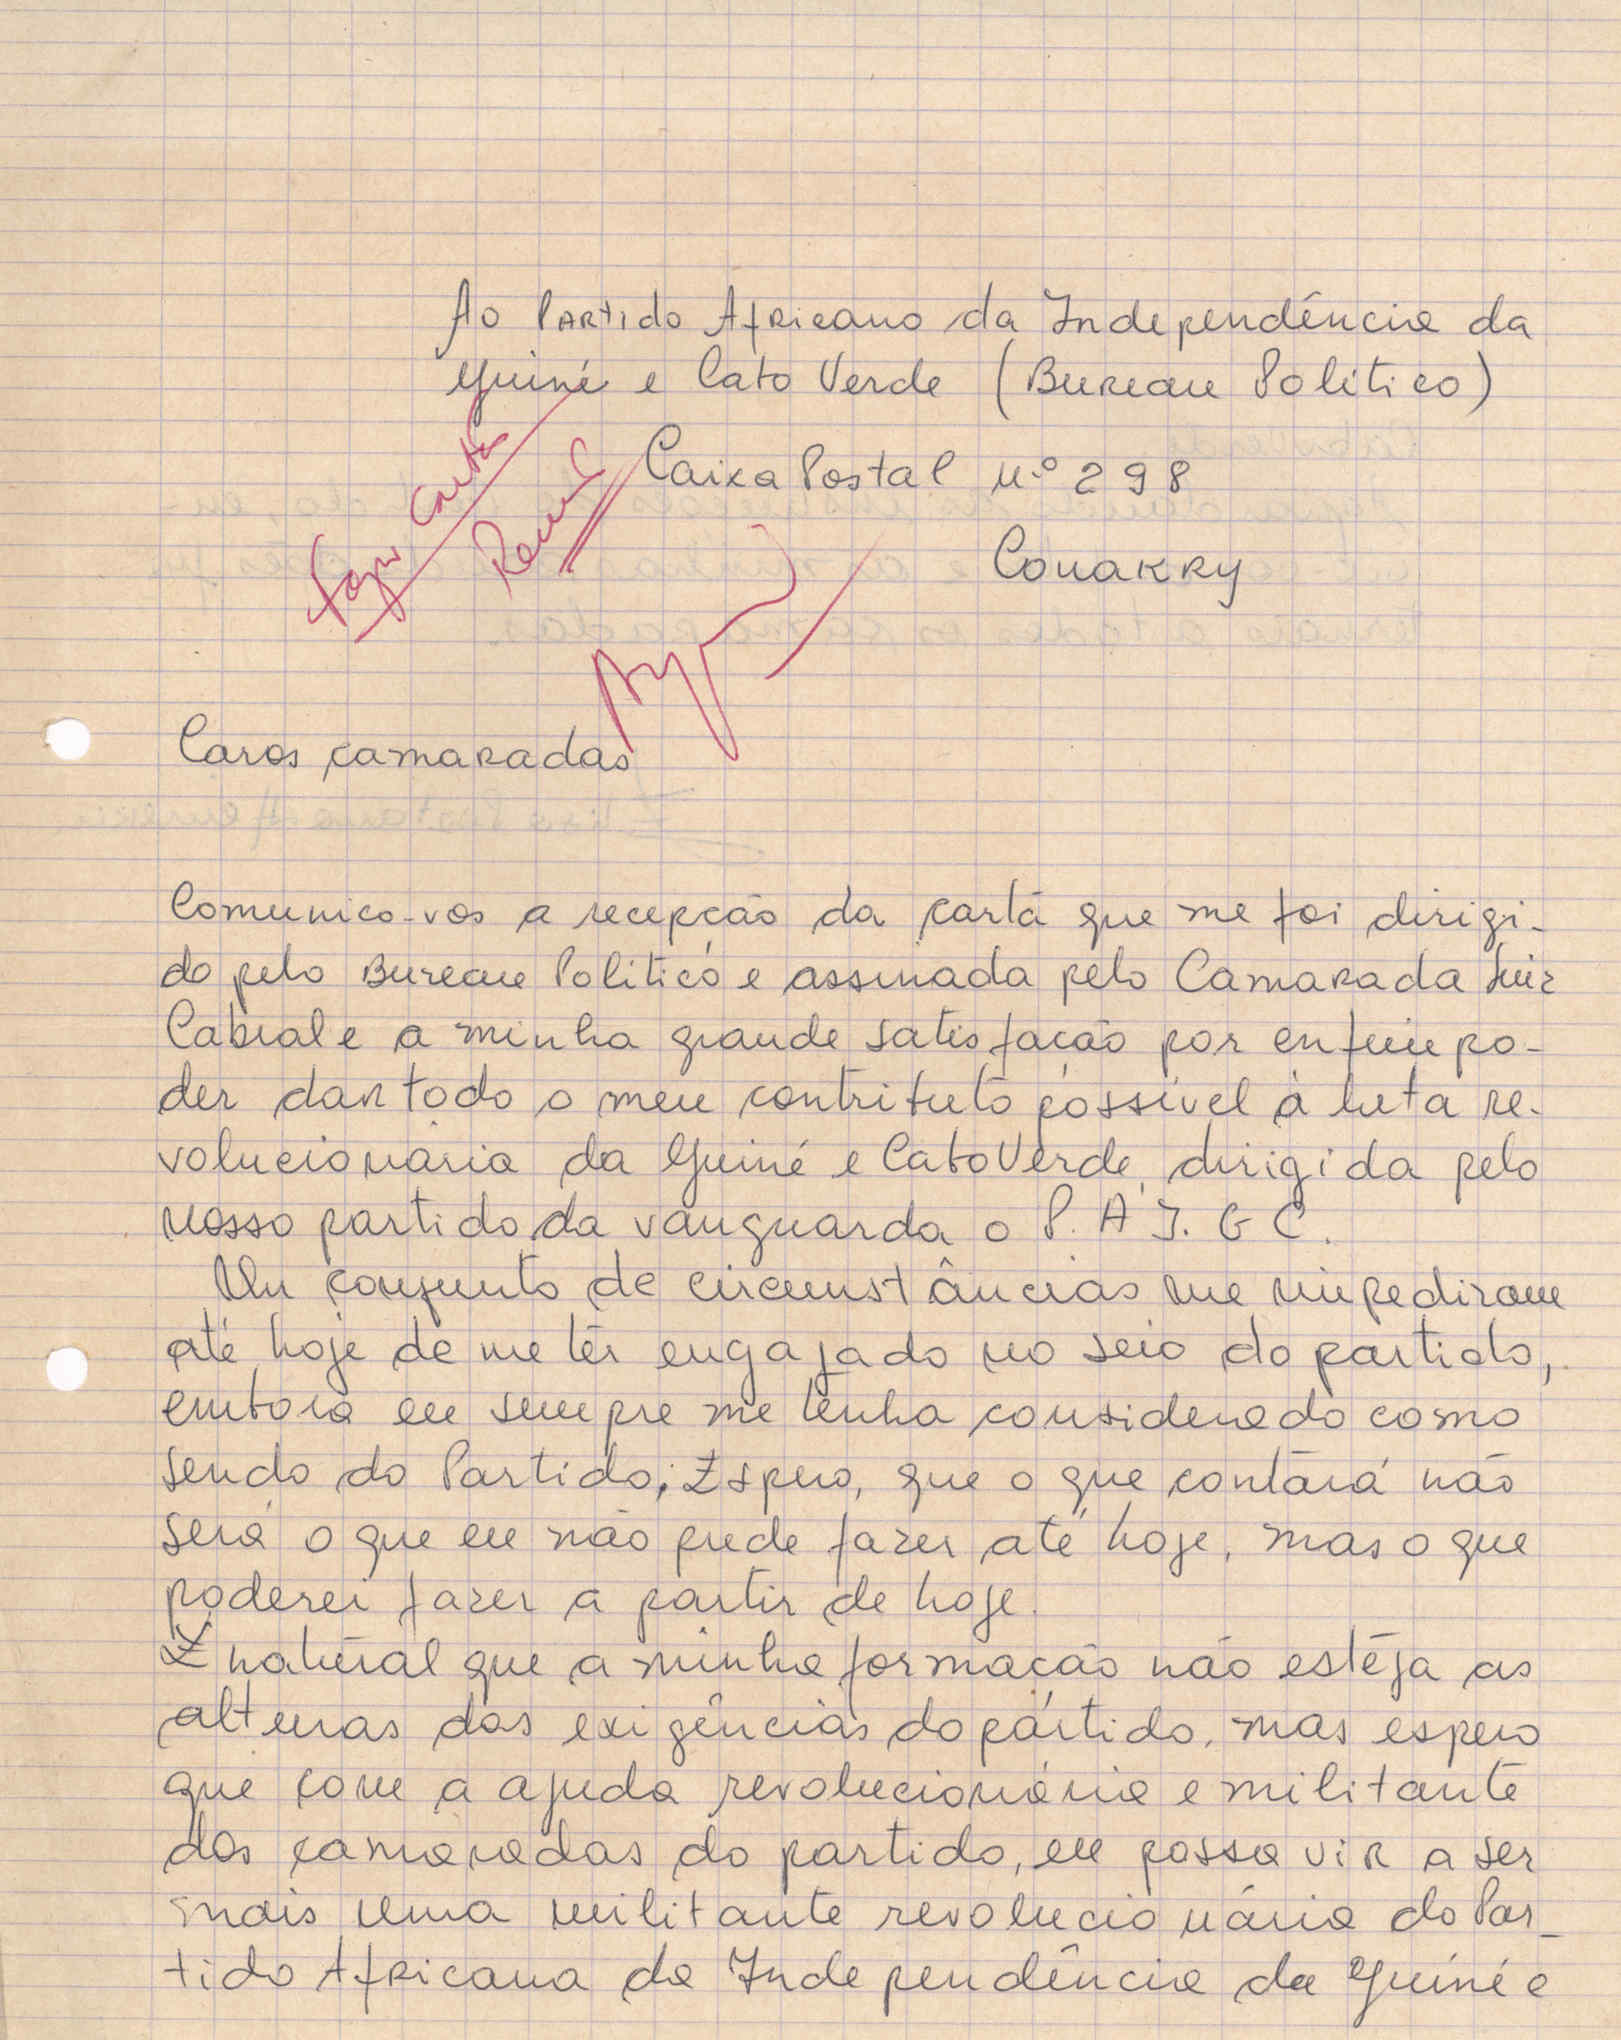 Ao Partido Africano da Independência da
Guiné e Cabo Verde (Bureau Político)
Caixa Postal Nº 298
Conakry
Caros camaradas
Comunico-vos a recepção da carta que me foi dirigi-
do pelo Bureau Politico e assinada pelo Camarada Luiz
Cabral e a minha grande satisfação por enfim po-
der dar todo o meu contributo possível à luta re-
volucionária da Guiné e Cabo Verde, dirigida pelo
nosso partido da vanguarda o P. A I. G C.
Um conjunto de circunstâncias me impediram
até hoje de me têr engajado no seio do partido,
embora eu sempre me tenha considerado como
sendo do Partido; Espero, que o que contará não
será o que eu não pude fazer até hoje, mas o que
poderei fazer a partir de hoje.
É natural que a minha formação não estêja as
alturas das exigências do partido, mas espero
que com a ajuda revolucionária e militante
dos camaradas do partido, eu possa vir a ser
mais uma militante revolucionária do Par-
tido Africana da Independência da Guiné e